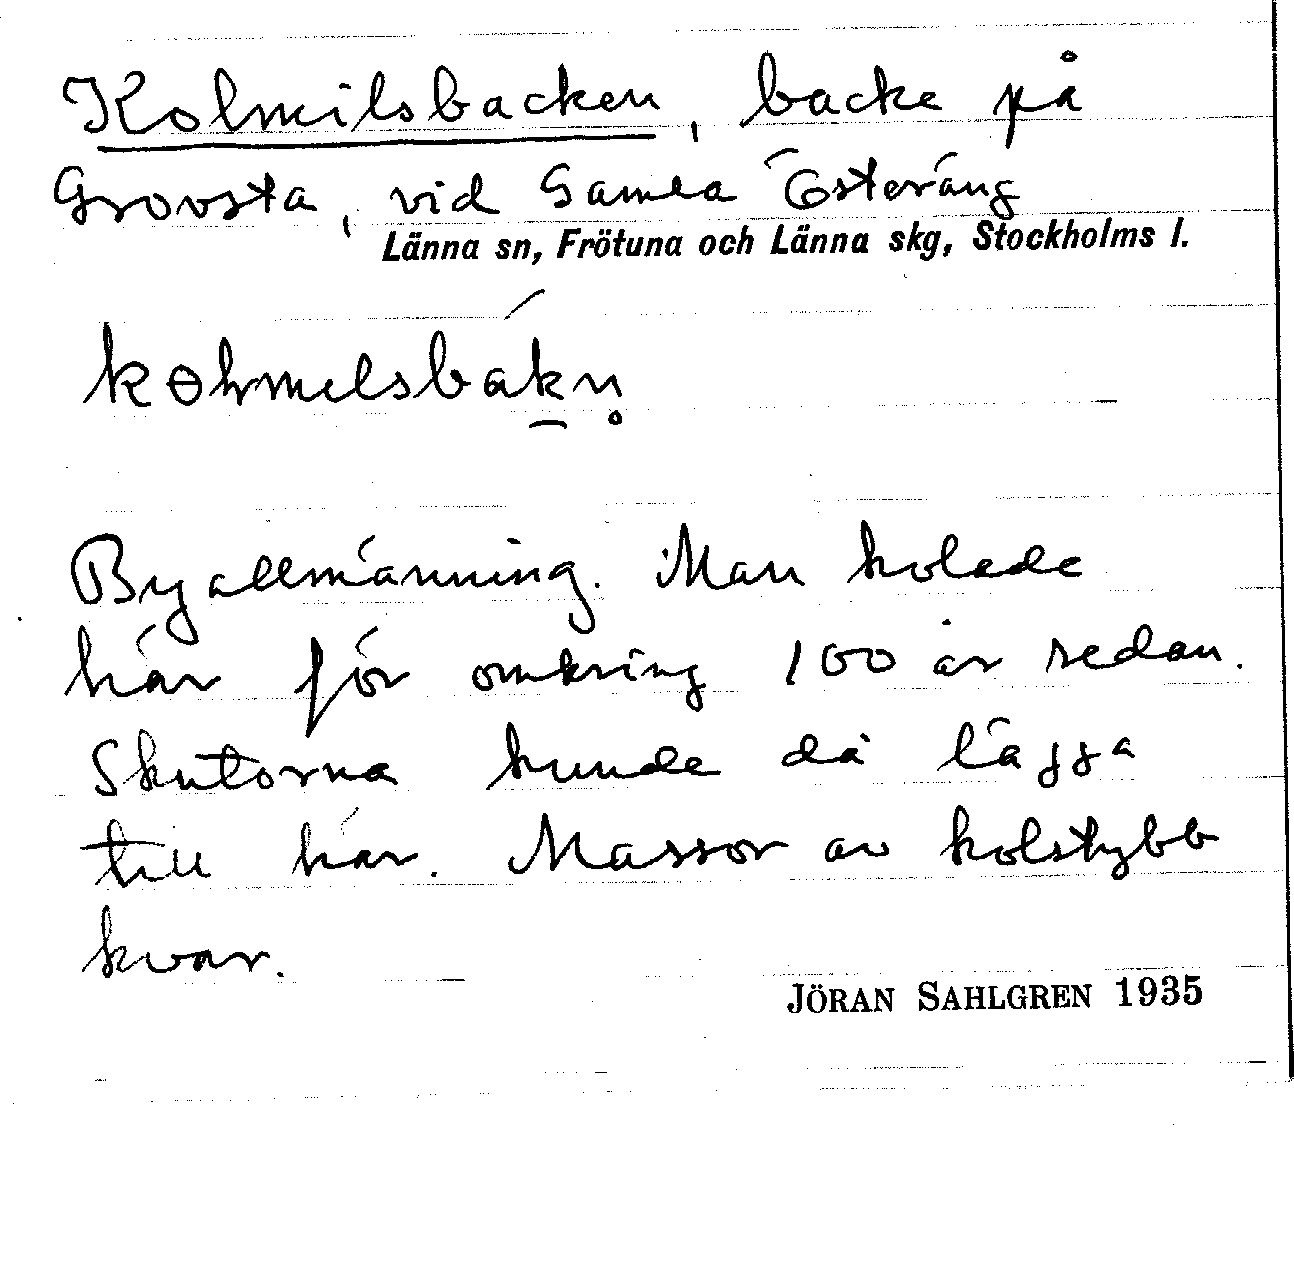 Kolmilsbacken, backe på
Grovsta, vid Gamla Österäng
Länna sn, Frötuna och Länna skg, Stockholms l.
Byallmänning. Man kolade
här för omkring 100 år sedan.
Skutorna kunde då lägga
till här. Massor av kolstybb
kvar.
JÖRAN SAHLGREN 1935